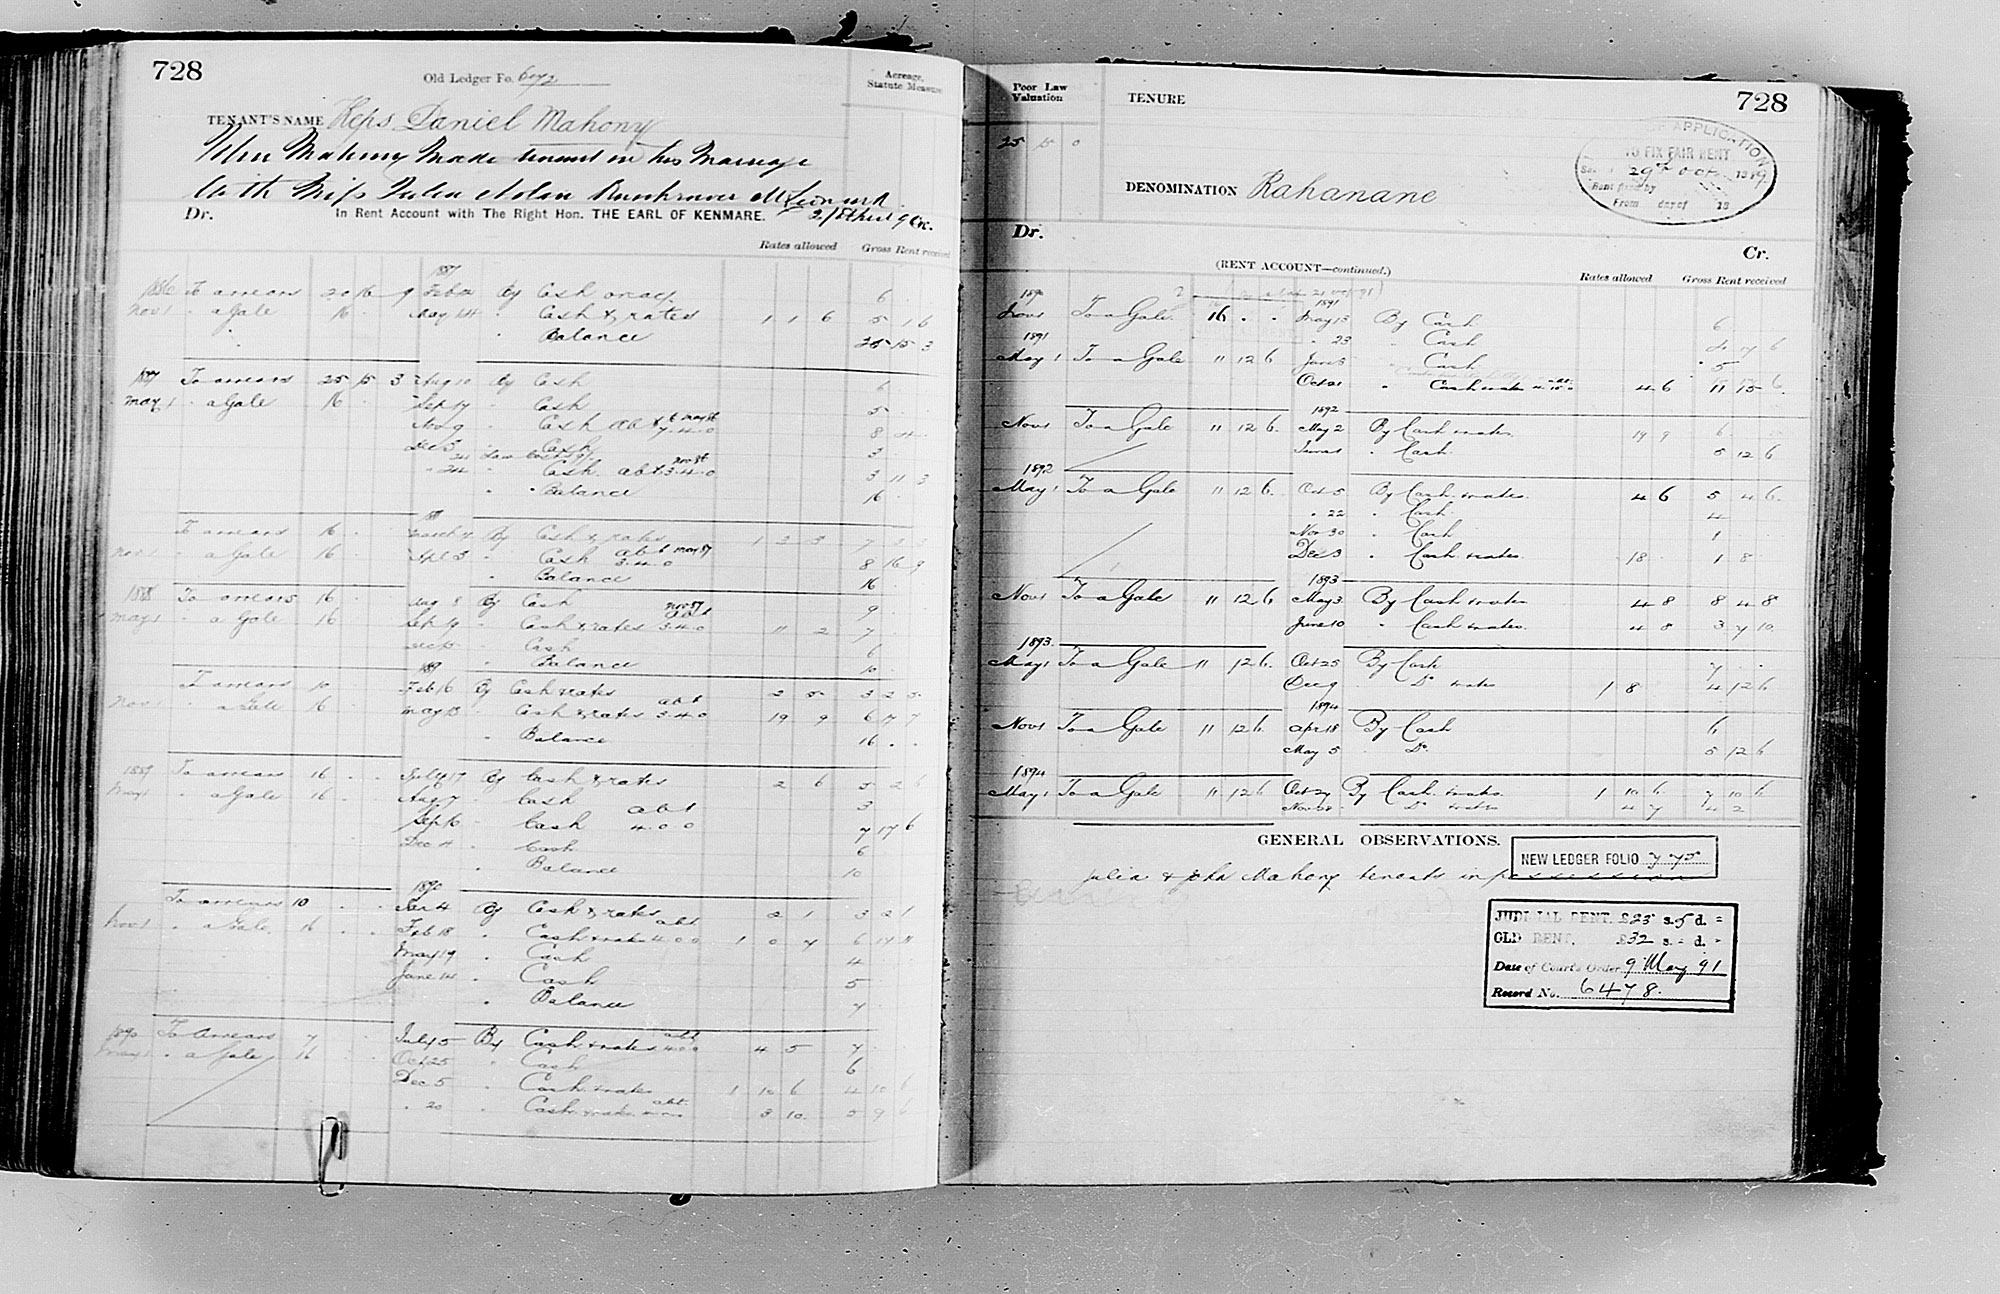 728
Old Ledger Fo. 672
Acreage, Statute Measure
TENANT'S NAME Reps Daniel Mahony
John Mahony Made tenant on his Marriage
With Miss Julia Nolan
Dr. In Rent Account with The Right Hon. THE EARL OF KENMARE. Cr.
Rates allowed Gross Rent received
1887
1886 To arrears 20 16 9 Feb By Cash on acct 6
Nov 1 " a Gale 16 May 14 " Cash & rates 1 1 6 5 1 6
" Balance 25 15 3
1887 To arrears 25 15 3 Aug 10 By Cash 6
May 1 " a Gale 16 Sep 17 " Cash 5
Nov 9 " Cash abt 7.4.0 8 4
Dec 5 " Cash 3
" 24 " Cash abt 3.4.0 3 11 3
" Balance 16
To arrears 16 March By Cash & rates 1 2 3 7 2 3
Nov 1 " a Gale 16 Apl 3 " Cash abt May 87 3.4.0 8 16 9
" Balance 16
1888 To arrears 16 Aug 8 By Cash 9
May 1 " a Gale 16 Sep 19 " Cash & rates 3.4.0 11 2 7
" Cash 6
" Balance 10
1889
To arrears 10 Feb 16 By Cash & rates 2 5 3 2 5
Nov 1 " a Gale 16 May 13 " Cash & rates abt 3.4.0 19 9 6 17 7
" Balance 16
1889 To arrears 16 July 17 By Cash & rates 2 6 5 2 6
May 1 " a Gale 16 Aug 7 " Cash 3
Sep 16 " Cash abt 4.0.0 7 17 6
Dec 4 " Cash 6
" Balance 10
1890
To arrears 10 Jan 4 By Cash & rates 2 1 3 2 1
Nov 1 " a Gale 16 Feb 18 " Cash & rates abt 4.0.0 1 0 7 6 17 11
May 19 " Cash 4
June 14 " Cash 5
" Balance 7
1890 To Arrears 7 July 5 By Cash & rates abt 4.0.0 4 5 7
May 1 " a Gale 16 Oct 25 " Cash 6
Dec 5 " Cash & rates 1 10 6 4 10 6
" 20 " Cash & rates abt 3 10 5 9 6
Poor Law Valuation
25 15 0
TENURE
728
DENOMINATION Rahanane
OF APPLICATION
TO FIX FAIR RENT
29th Oct 1889
Rent fixed by
From day of 18
Dr. Cr.
(RENT ACCOUNT—continued.)
Rates allowed Gross Rent received
1890 1891
Nov 1 To a Gale 16 . . May 13 By Cash 6
1891 " 23 " Cash 4 7 6
May 1 To a Gale 11 12 6 June 3 " Cash 5
Oct 21 " Cash & rates 4 6 11 15 6
1892
Nov 1 To a Gale 11 12 6 May 2 By Cash & rates 19 9 6
June 1 " Cash 5 12 6
1892
May 1 To a Gale 11 12 6 Oct 5 By Cash & rates 4 6 5 4 6
" 22 " Cash 4
Nov 30 " Cash 1
Dec 3 " Cash & rates 18 1 8
1893
Nov 1 To a Gale 11 12 6 May 3 By Cash & rates 4 8 8 4 8
June 10 " Cash & rates 4 8 3 7 10
1893
May 1 To a Gale 11 12 6 Oct 25 By Cash 7
Dec 9 Do rates 1 8 4 12 6
1894
Nov 1 To a Gale 11 12 6 Apr 18 By Cash 6
May 5 " Do 5 12 6
1894
May 1 To a Gale 11 12 6 Oct 27 By Cash & rates 1 10 6 7 10 6
Nov 24 " Do rates 4 7 4 2
GENERAL OBSERVATIONS.
NEW LEDGER FOLIO 775
Julia & John Mahony tenants in possession
JUDICIAL RENT, £23 s. 5 d. =
OLD RENT, £32 s. - d. -
Date of Court's Order 9 May 91
Record No. 6478.